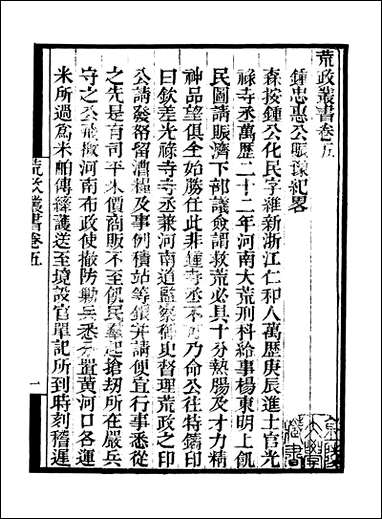 荒政叢書卷五
鍾忠惠公賑豫紀畧
森按鍾公化民字維新浙江仁和人萬歷庚辰進士官光
祿寺丞萬歷二十二年河南大荒刑科給事楊東明上飢
民圖請賑濟下部議僉謂救荒必具十分熱腸及才力精
神品望俱全始勝任此非鍾寺丞不可乃命公往特鑄印
曰欽差光祿寺寺丞兼河南道監察御史督理荒政之印
公請發帑留漕糧及事例積站等銀并請便宜行事悉從
之先是有司平米價商販不至饑民羣起搶刼所在嚴兵
守之公飛檄河南布政使撤防勦兵悉分置黃河口各運
米所過爲米舶傳䌫護送至境設官單記所到時刻稽遲
荒政叢書卷五
一